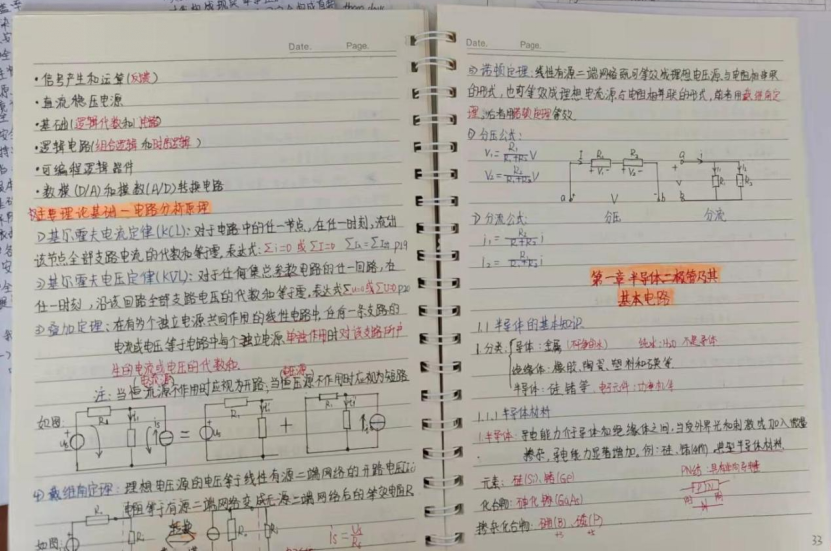 Date. Page.
·信号产生和运算(反馈)
·直流稳压电源
·基础(逻辑代数和门电路)
·逻辑电路(组合逻辑和时序逻辑)
·可编程逻辑器件
·数模(D/A)和模数(A/D)转换电路
主要理论基础-电路分析原理
1)基尔霍夫电流定律(KCL):对于电路中的任一节点,在任一时刻,流出
该节点全部支路电流的代数和等于零,表达式:Σi=0 或ΣI=0 P19
2)基尔霍夫电压定律(KVL):对于任何集总参数电路的任一回路,在
任一时刻,沿该回路全部支路电压的代数和等于零,表达式Σu=0或ΣU=0
3)叠加定理:在有多个独立电源共同作用的线性电路中,任意一条支路的
电流或电压等于电路中每个独立电源单独作用时对该支路所产
生的电流或电压的代数和
注:当恒流源不作用时应视为开路,当恒压源不作用时应视为短路
如图:
4)戴维南定理:理想电压源的电压等于线性有源二端网络的开路电压
电阻等于有源二端网络变成无源二端网络后的等效电阻R
如图:
Date. Page.
诺顿定理:线性有源二端网络既可等效成理想电压源与电阻串联
的形式,也可等效成理想电流源与电阻相并联的形式,前者用戴维南定
理,后者用诺顿定理等效
分压公式:
a V b
分流公式:
分压 分流
第一章 半导体二极管及其
基本电路
1.1 半导体的基本知识
1.分类: 导体:金属 纯水:H₂O 不是导体
绝缘体:橡胶,陶瓷,塑料和石英等
半导体:硅,锗等
1.1.1 半导体材料
1.半导体:导电能力介于导体和绝缘体之间,当受外界光和热刺激或加入微量
掺杂,导电能力显著增加,例:硅,锗,典型半导体材料
元素:硅(Si),锗(Ge)
化合物:砷化镓(GaAs)
掺杂化合物:硼(B),磷(P)
33